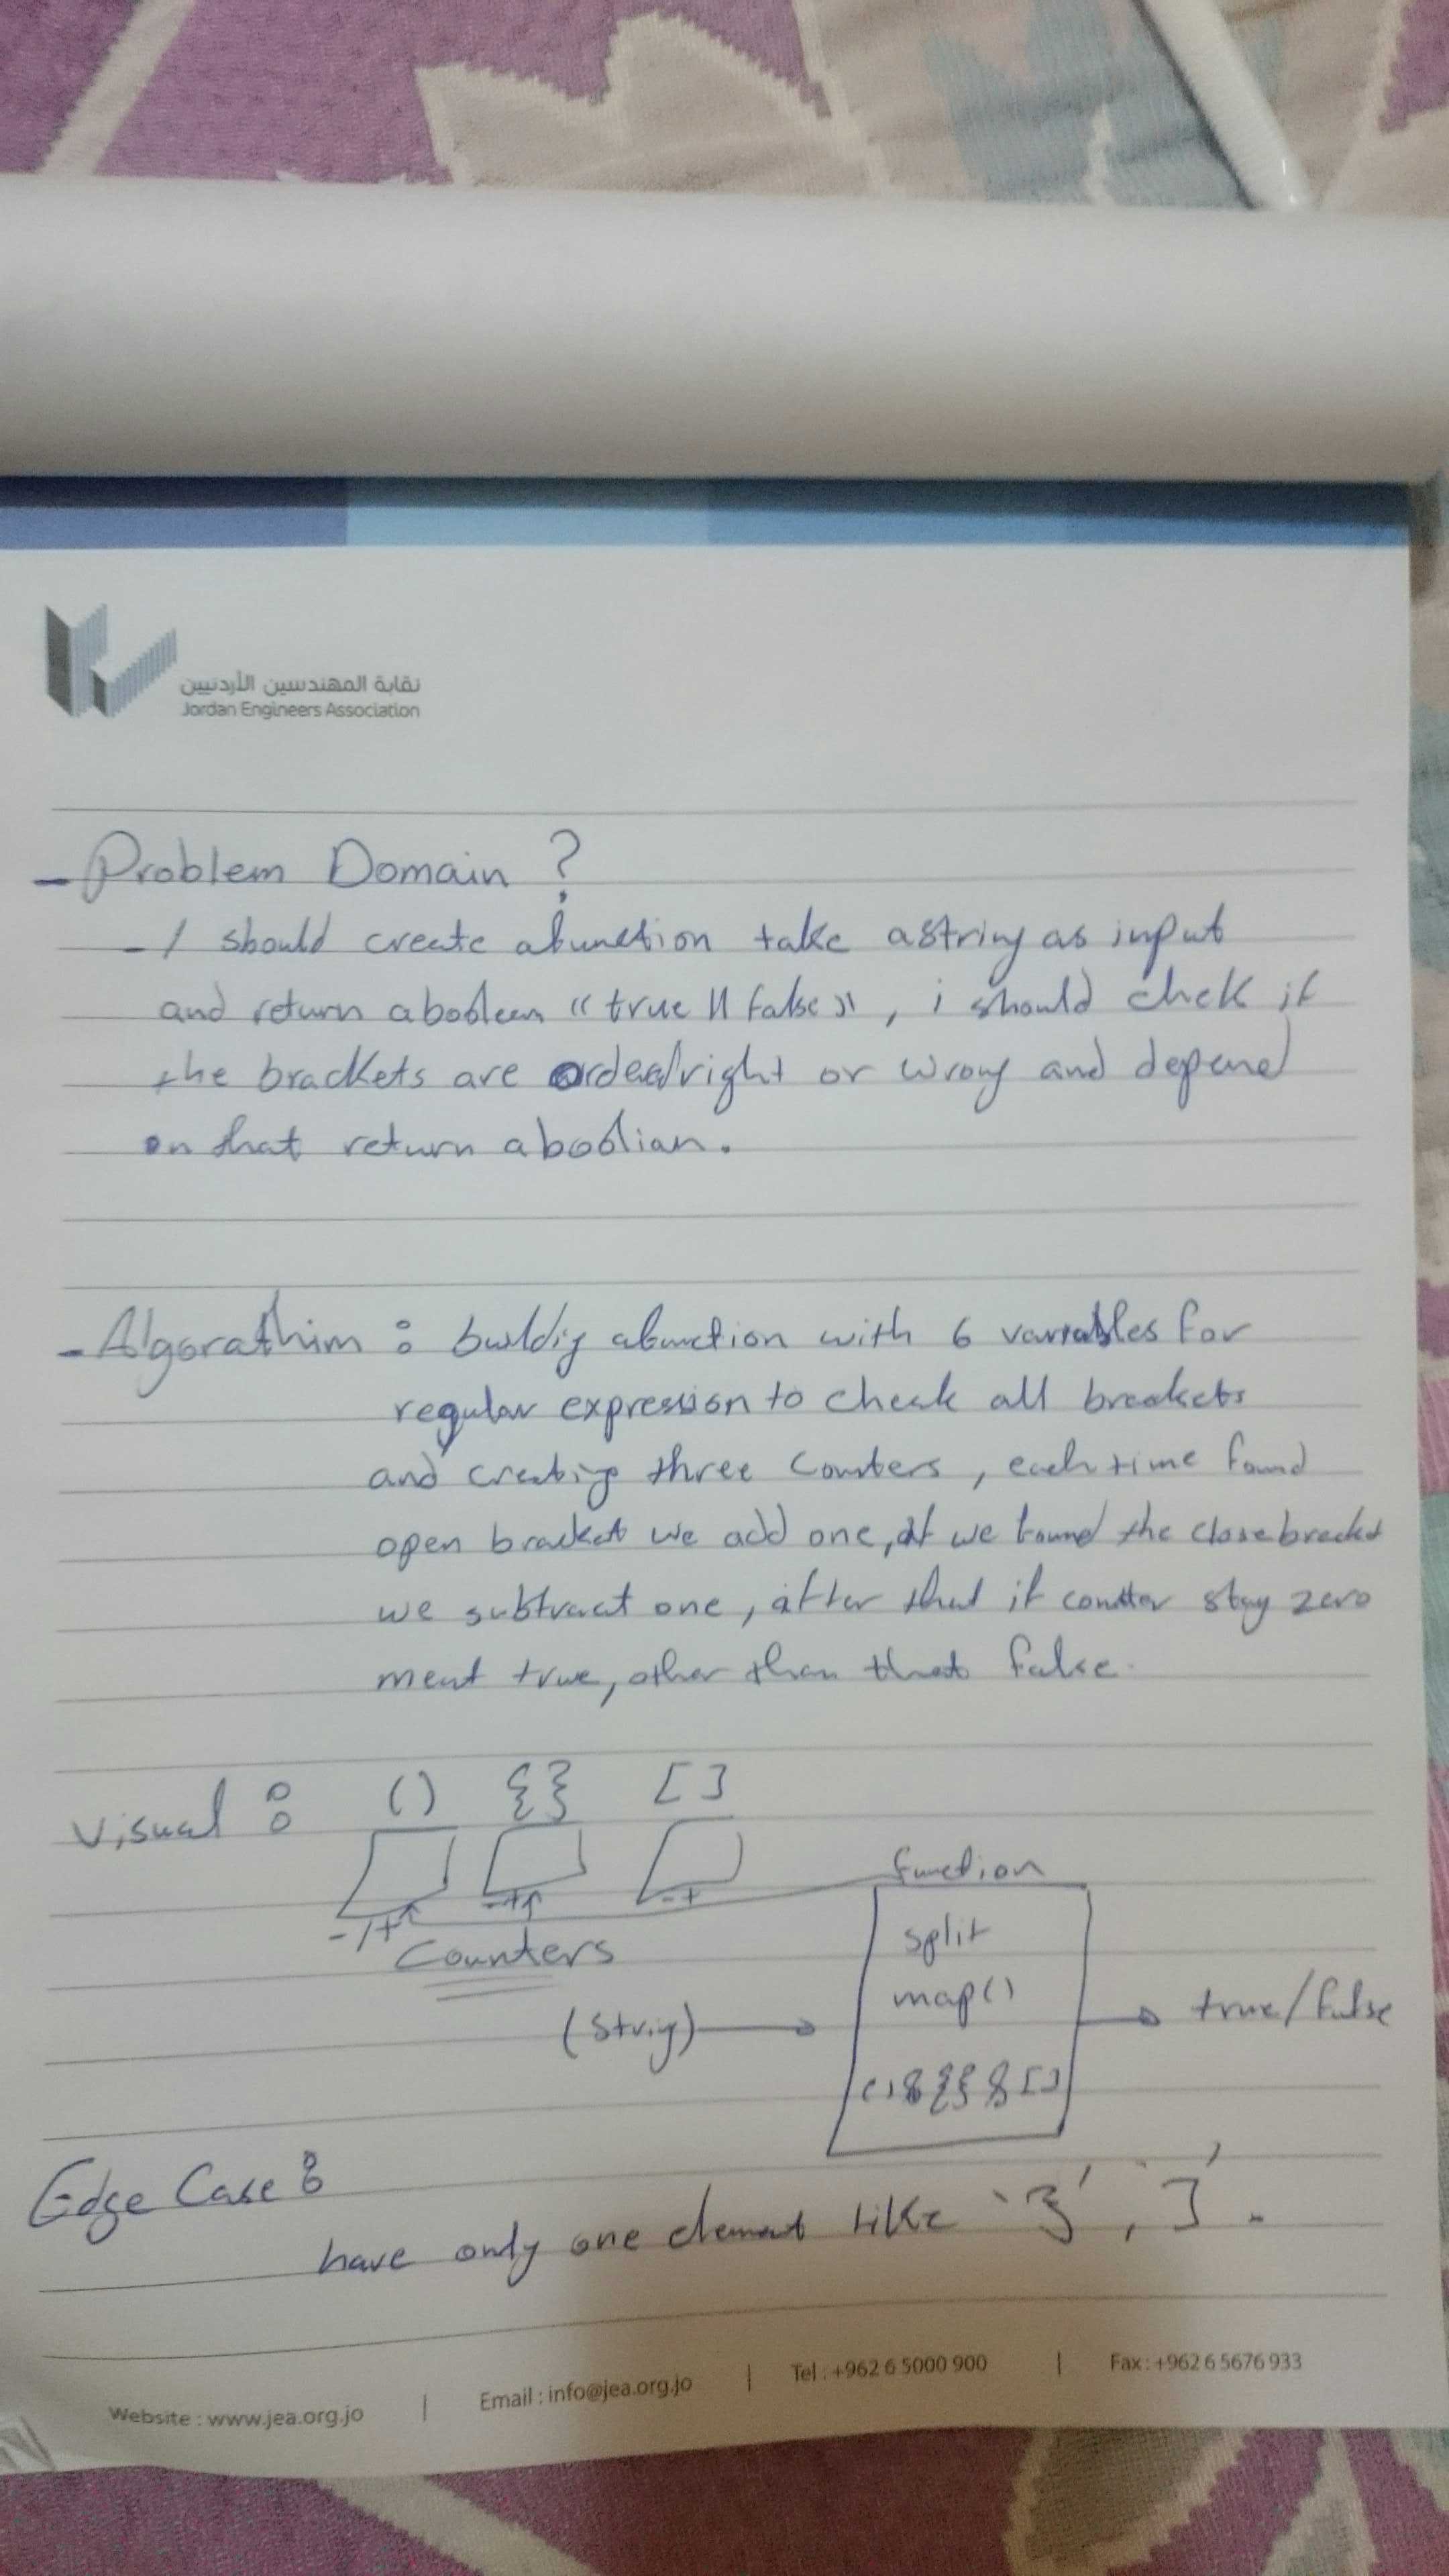 نقابة المهندسين الأردنيين
Jordan Engineers Association
- Problem Domain ?
- I should create a function take a string as input
and return a boolean "true || false", i should chek if
the brackets are orderd right or wrong and depend
on that return a boolian.
- Algorathim : buildig a function with 6 variables for
regular expression to check all brackets
and creatig three counters, each time found
open bracket we add one, if we found the close bracket
we subtract one, after that if contter stay zero
ment true, other than that false.
visual : () {} []
-/+ -+ -+
Counters
function
split
map()
(string) → true/false
() & {} & []
Edge Case :
have only one element like '}', ]'.
Website : www.jea.org.jo | Email : info@jea.org.jo | Tel : +962 6 5000 900 | Fax : +962 6 5676 933